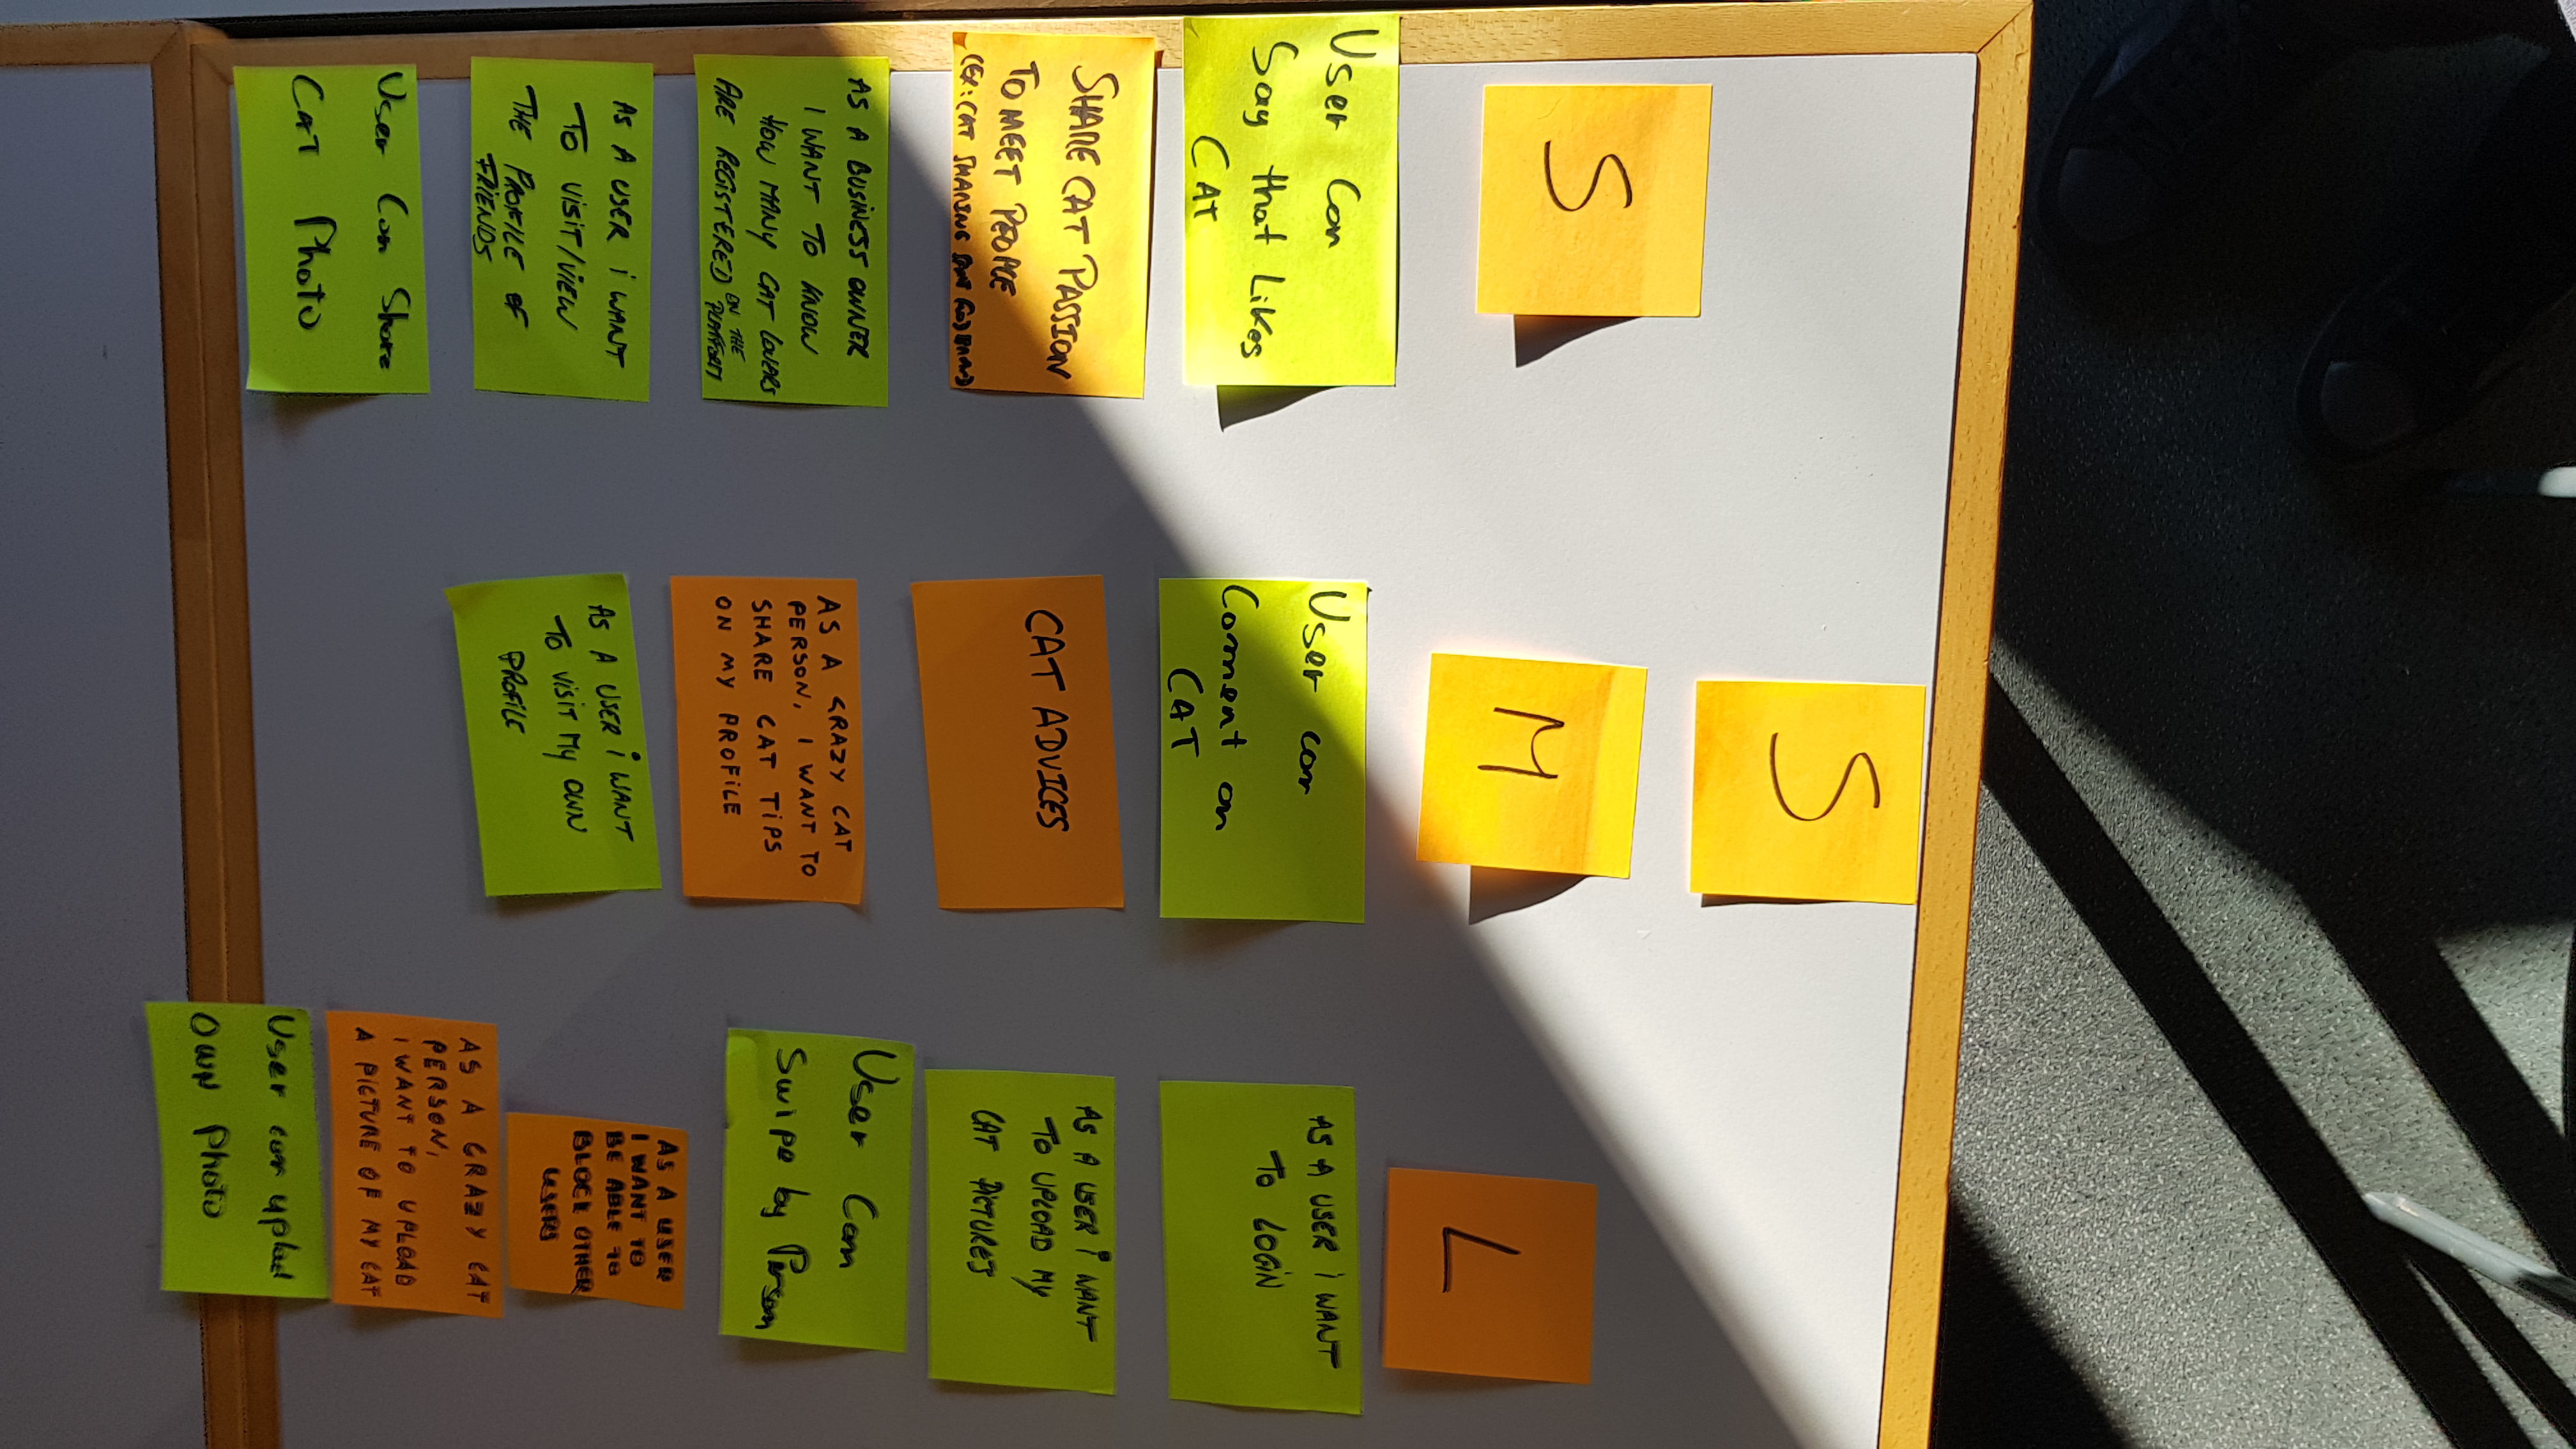 S
S
User Can
Say that Likes
CAT
SHARE CAT PASSION
TO MEET PEOPLE
(EX: CAT SHARING
AS A BUSINESS OWNER
I WANT TO KNOW
HOW MANY CAT LOVERS
ARE REGISTERED ON THE PLATFORM
AS A USER i WANT
TO VISIT/VIEW
THE PROFILE OF
FRIENDS
User Can Share
CAT Photo
M
User can
Coment on
CAT
CAT ADVICES
AS A CRAZY CAT
PERSON, I WANT TO
SHARE CAT TIPS
ON MY PROFILE
AS A USER i WANT
TO VISIT MY OWN
PROFILE
L
AS A USER i WANT
TO LOGIN
AS A USER i WANT
TO UPLOAD MY
CAT PICTURES
User Can
Swipe by Person
AS A USER
I WANT TO
BE ABLE TO
BLOCK OTHER
USERS
AS A CRAZY CAT
PERSON,
I WANT TO UPLOAD
A PICTURE OF MY CAT
User can upload
Own Photo